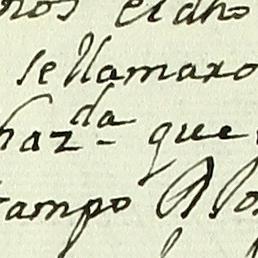 nos el dho
se llamaro
haz.da que
campo Alo